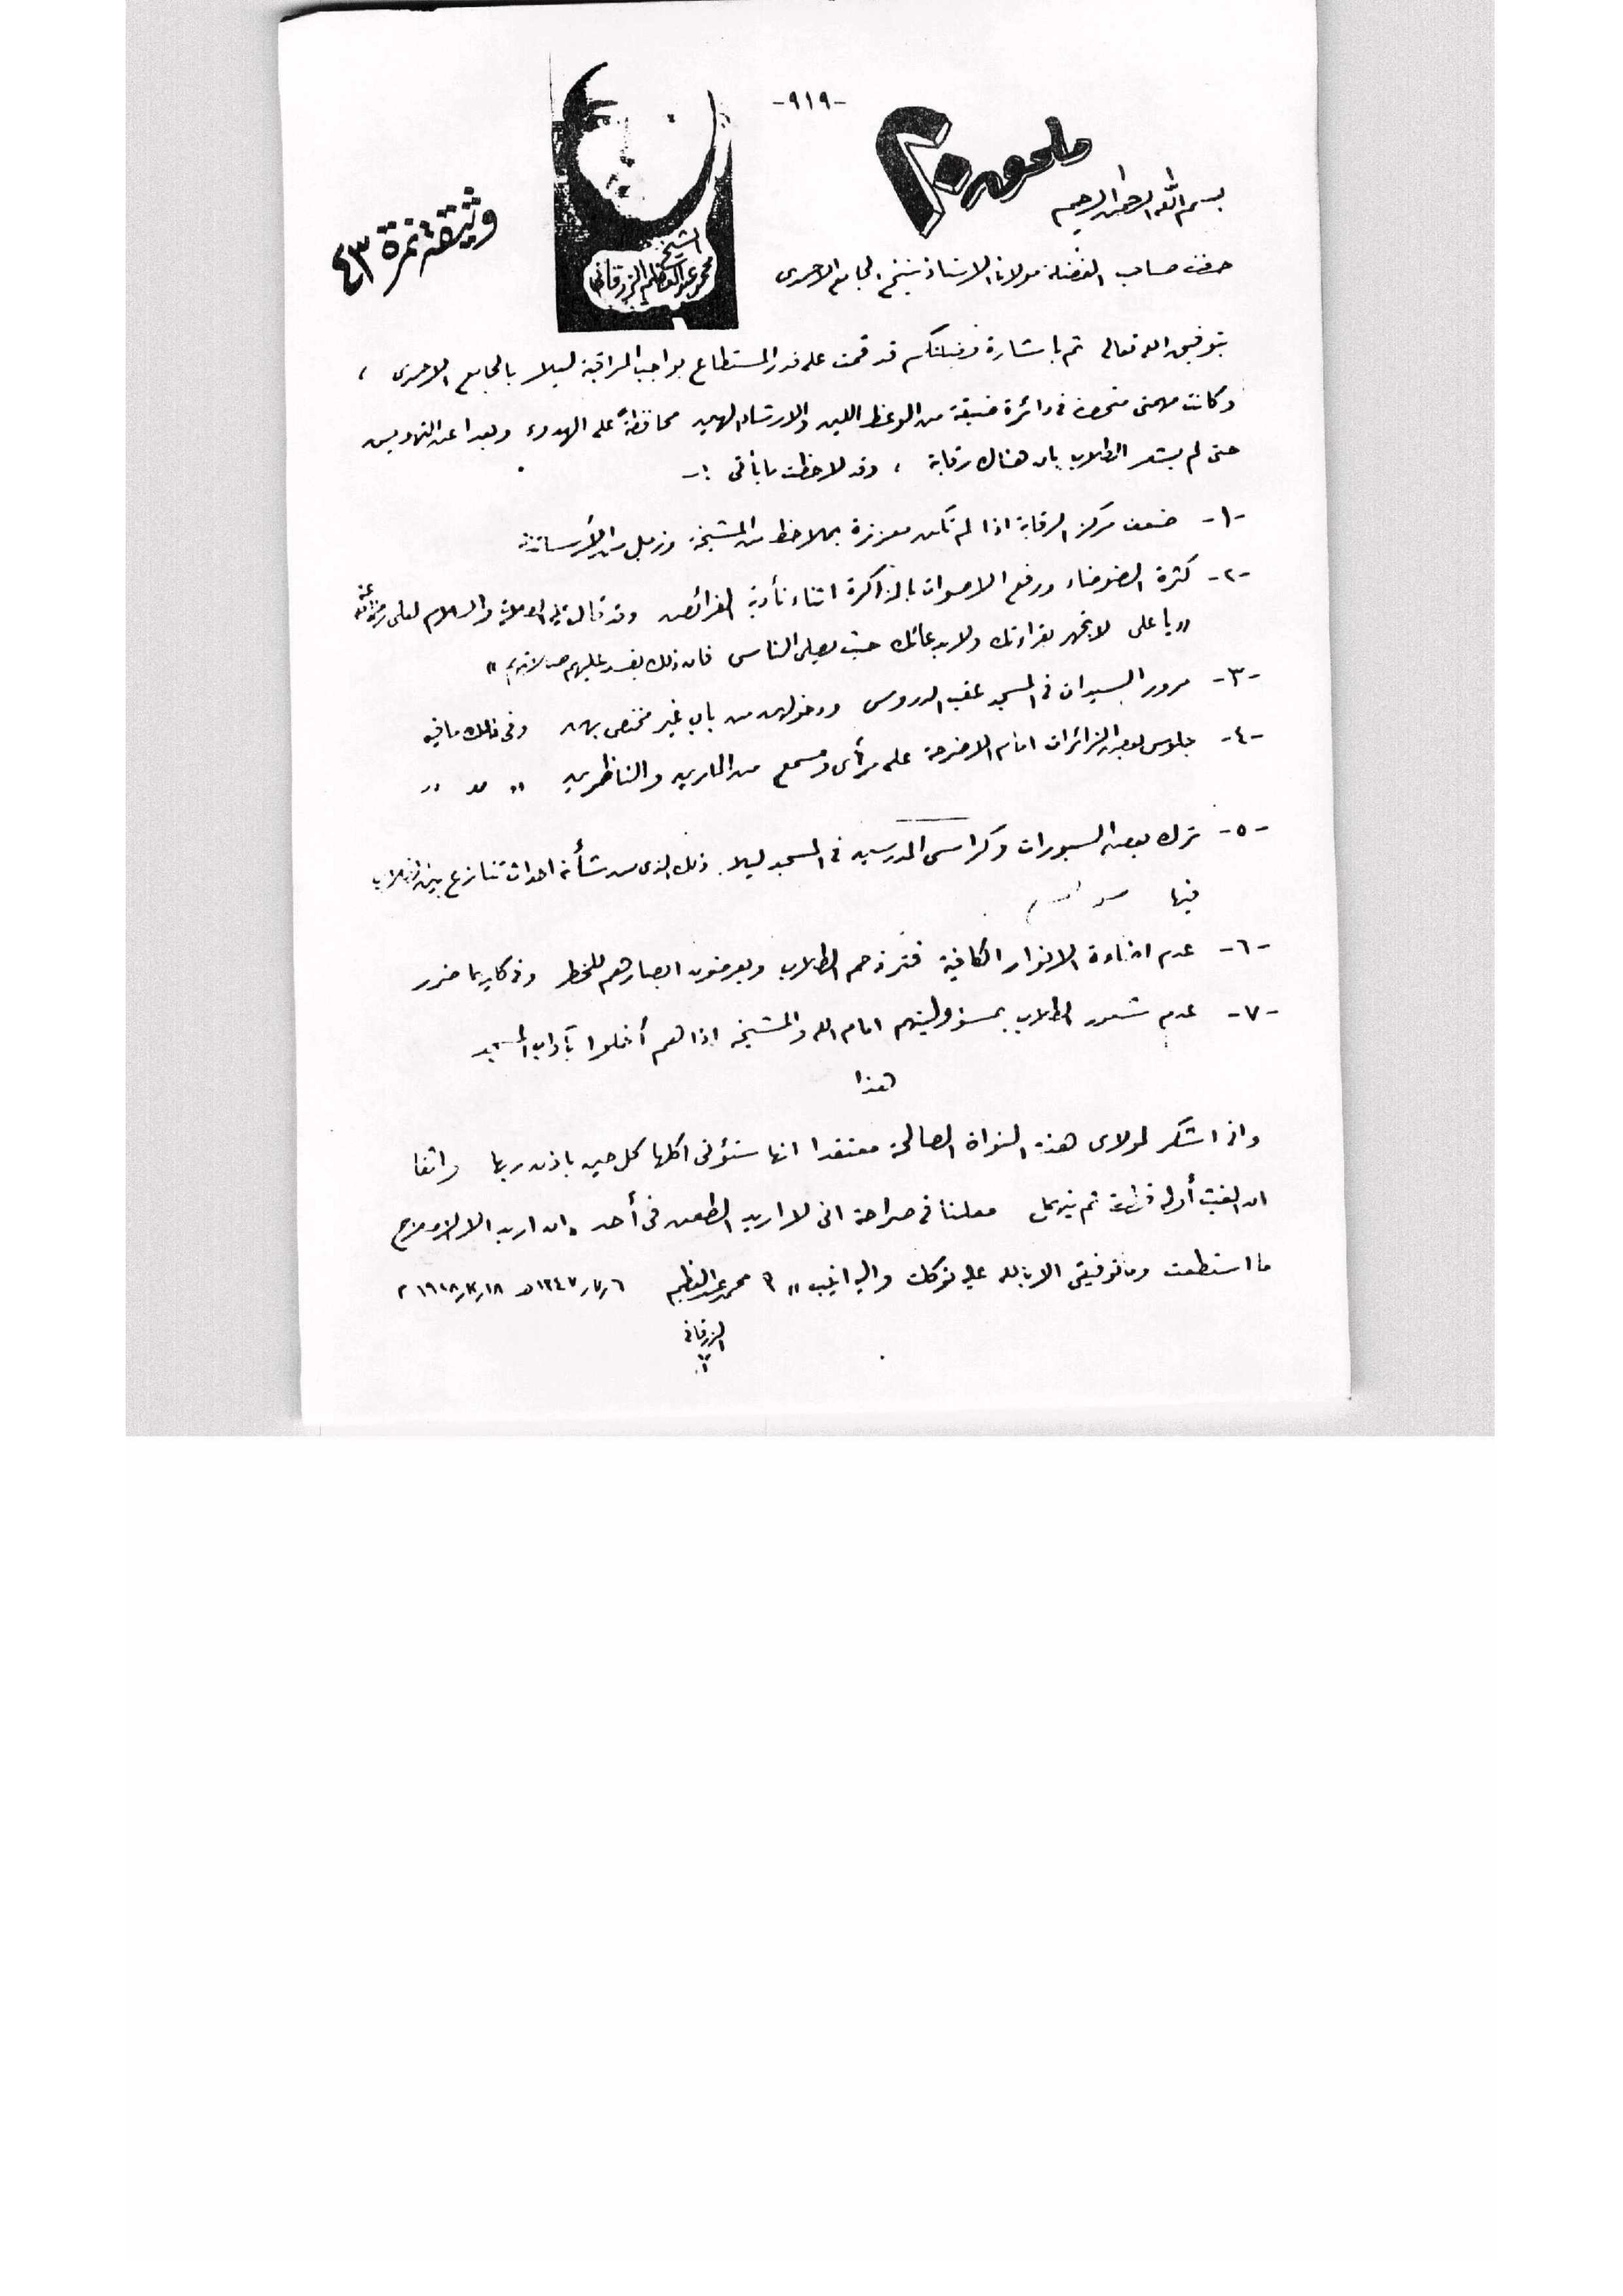 -٩١٩-
ملحوم ٢
وثيقة نمرة ٤٣
الشيخ
محمد عبد العظيم الزرقاني
بسم الله الرحمن الرحيم
حضرت صاحب الفضيلة مولانا الاستاذ شيخ الجامع الاحمدى
بتوفيق الله تعالى ثم باشارة فضيلتكم قد قمت على قدر المستطاع بواجب المراقبة ليلا بالجامع الاحمدى ،
وكانت مهمتى منحصرة فى دائرة ضيقة من الوعظ اللين والارشاد الهين محافظةً على الهدوء وبعدا عن التهويس
حتى لم يشعر الطلاب بان هناك رقابة ، وقد لاحظت ما يأتى :-
-١- ضعف مركز الرقابة اذا لم تكن معززة بملاحظ من المشيخة وزميل من الأساتذة
-٢- كثرة الضوضاء ورفع الاصوات بالمذاكرة اثناء تأدية الفرائض وقد قال عليه الصلاة والسلام لعلى رضى الله عنه
" يا على لا تجهر بقراءتك ولا بدعائك حيث يصلى الناس فان ذلك يفسد عليهم صلاتهم "
-٣- مرور السيدات فى المسجد عقب الدروس ودخولهن من باب غير مختص بهن وفى ذلك ما فيه
-٤- جلوس بعض الزائرات امام الاضرحة على مرأى ومسمع من المارين والناظرين " " "
-٥- ترك بعض السبورات وكراسى المدرسين فى المسجد ليلا ذلك الذى من شأنه احداث تنازع بين الطلاب
فيها
-٦- عدم اضاءة الانوار الكافية فتزدحم الطلاب ويعرضون ابصارهم للخطر وفى كليهما ضرر
-٧- عدم شعور الطلاب بمسؤوليتهم امام الله والمشيخة اذا هم أخلوا بآداب المسجد
هذا
وانى اشكر لمولاى هذه النواة الصالحة معتقدا انها ستؤتى اكلها كل حين باذن ربها واثقا
ان الغيث أوله قطرة ثم ينهمل معلنا فى صراحة انى لا اريد الطعن فى أحد " ان اريد الا الاصلاح
ما استطعت وما توفيقى الا بالله عليه توكلت واليه انيب " محمد عبد العظيم ٦/٧/١٣٤٧هـ ١٨/١٢/١٩٢٨م
الزرقانى